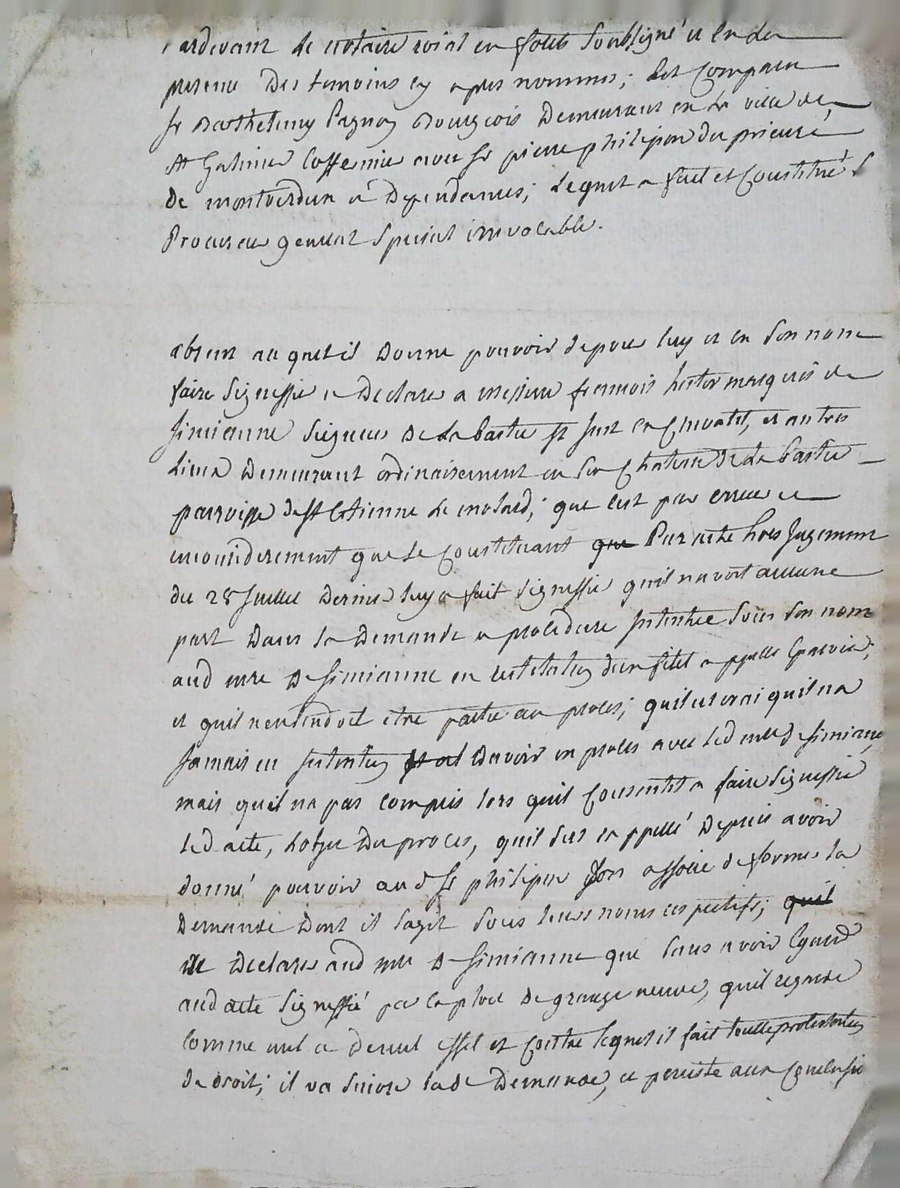 Pardevant Le notaire roial en forêts soubsigné et en la
presence Des temoins cy apres nommés; est comparu
Sr Barthelemy Pagnon Bourgeois Demeurant en La ville de
St Galmier Coffermier avec Sr pierre philipon du prieuré
De montverdun et Dependances; Lequel a fait et Constitué P
Procureur general special irrevocable.
absent au quel il Donne pouvoir de pour luy et en son nom
faire signiffier et Declarer a messire francois hector marquis de
Simianne seigneur De La bastie St Just en Chevalet, et autres
Lieux Demeurant ordinairement en son Chateau De La bastie
parroisse de St Etienne Le molard; que c'est par erreur et
inconsiderement que Le Constituant que Par acte hors Jugement
du 28 Juillet Dernier luy a fait signiffier quil n'avoit aucune
part Dans La Demande et procedure Intentée sous son nom
aud mre De Simianne en d'un fief appellé
et quil n'entendoit etre partie au proces; quil est vrai quil n'a
Jamais eu Intention D'avoir un proces avec led mre de Simianne
mais quil n'a pas compris lors quil Consentit a faire signiffier
Led acte, Lobjet Du proces, quil s'est rappellé Depuis avoir
donné pouvoir aud Sr philipon son associé de former la
Demande Dont il sagit sous leurs noms respectifs; quil
De Declarer aud mre De Simianne que sans avoir Egard
aud acte signiffié par exploit De grange neuve, quil regarde
comme nul et de nul effet et contre lequel il fait toutte protestation
de droit; il va suivre lade Demande, et persiste aux Conclusio